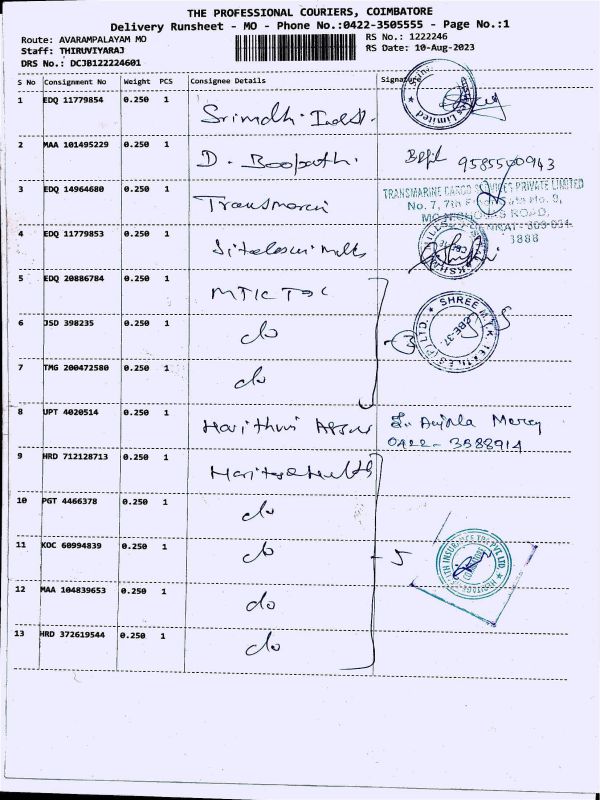 THE PROFESSIONAL COURIERS, COIMBATORE
Delivery Runsheet - MO - Phone No.:0422-3505555 - Page No.:1
Route: AVARAMPALAYAM MO
RS No.: 1222246
Staff: THIRUVIYARAJ
RS Date: 10-Aug-2023
DRS No.: DCJB122224601
S No Consignment No Weight PCS Consignee Details Signature
1 EDQ 11779854 0.250 1
Limited
2 MAA 101495229 0.250 1 D. Boopathi. 9585500943
3 EDQ 14964680 0.250 1
TRANSMARINE CARGO SERVICES PRIVATE LIMITED
No. 7, 7th
4 EDQ 11779853 0.250 1
5 EDQ 20886784 0.250 1
6 JSD 398235 0.250 1 do
SHREE M.T.K. TEXTILES (P) LTD.
CBE-37
3
7 TMG 200472580 0.250 1 do
8 UPT 4020514 0.250 1 Mercy
0422-3588914
9 HRD 712128713 0.250 1
10 PGT 4466378 0.250 1 do
11 KOC 60994839 0.250 1 do 5
COIMBATORE
12 MAA 104839653 0.250 1 do
13 HRD 372619544 0.250 1 do